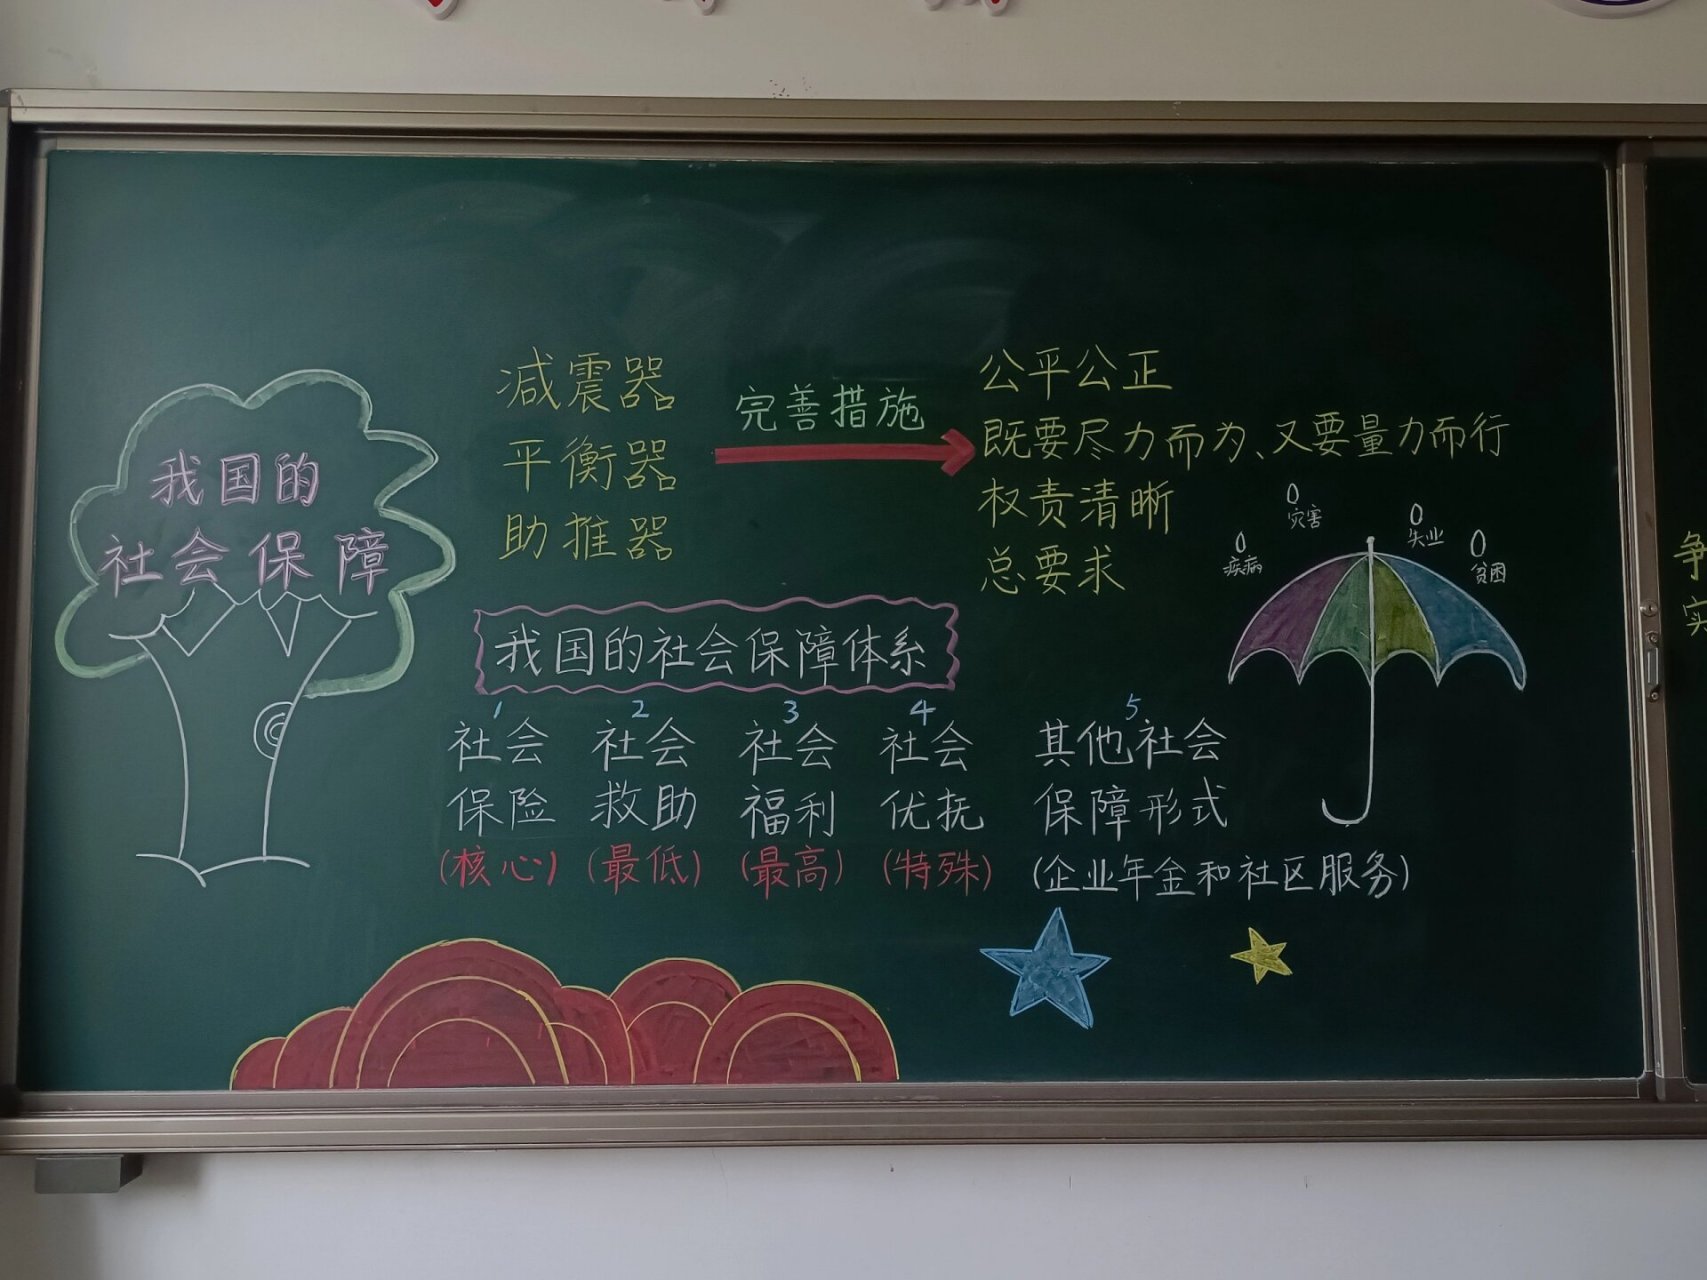 我国的
社会保障
减震器
平衡器
助推器
完善措施
公平公正
既要尽力而为、又要量力而行
权责清晰
总要求
灾害
失业
疾病
贫困
我国的社会保障体系
1 2 3 4 5
社会 社会 社会 社会 其他社会
保险 救助 福利 优抚 保障形式
(核心) (最低) (最高) (特殊) (企业年金和社区服务)
争
实